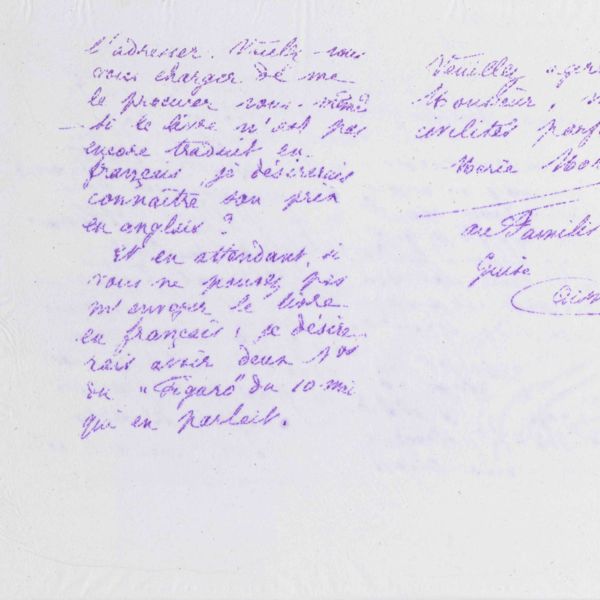 l'adresser. Voulez-vous
vous charger de me
le procurer vous-même
si le livre n'est pas
encore traduit en
français je désirerais
connaître son prix
en anglais ?
Et en attendant, si
vous ne pouvez pas
m'envoyer le livre
en français, je désire
rais avoir deux Nos
du "Figaro" du 10 mai
qui en parlait.
Veuillez
Monsieur,
civilités
Marie
au Familis
Guise